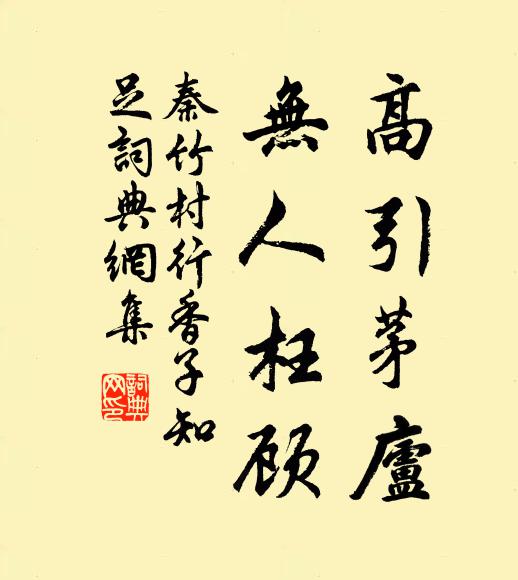 高引茅廬
無人枉顾
秦竹村行香子知
足詞典網集
詞典
网印